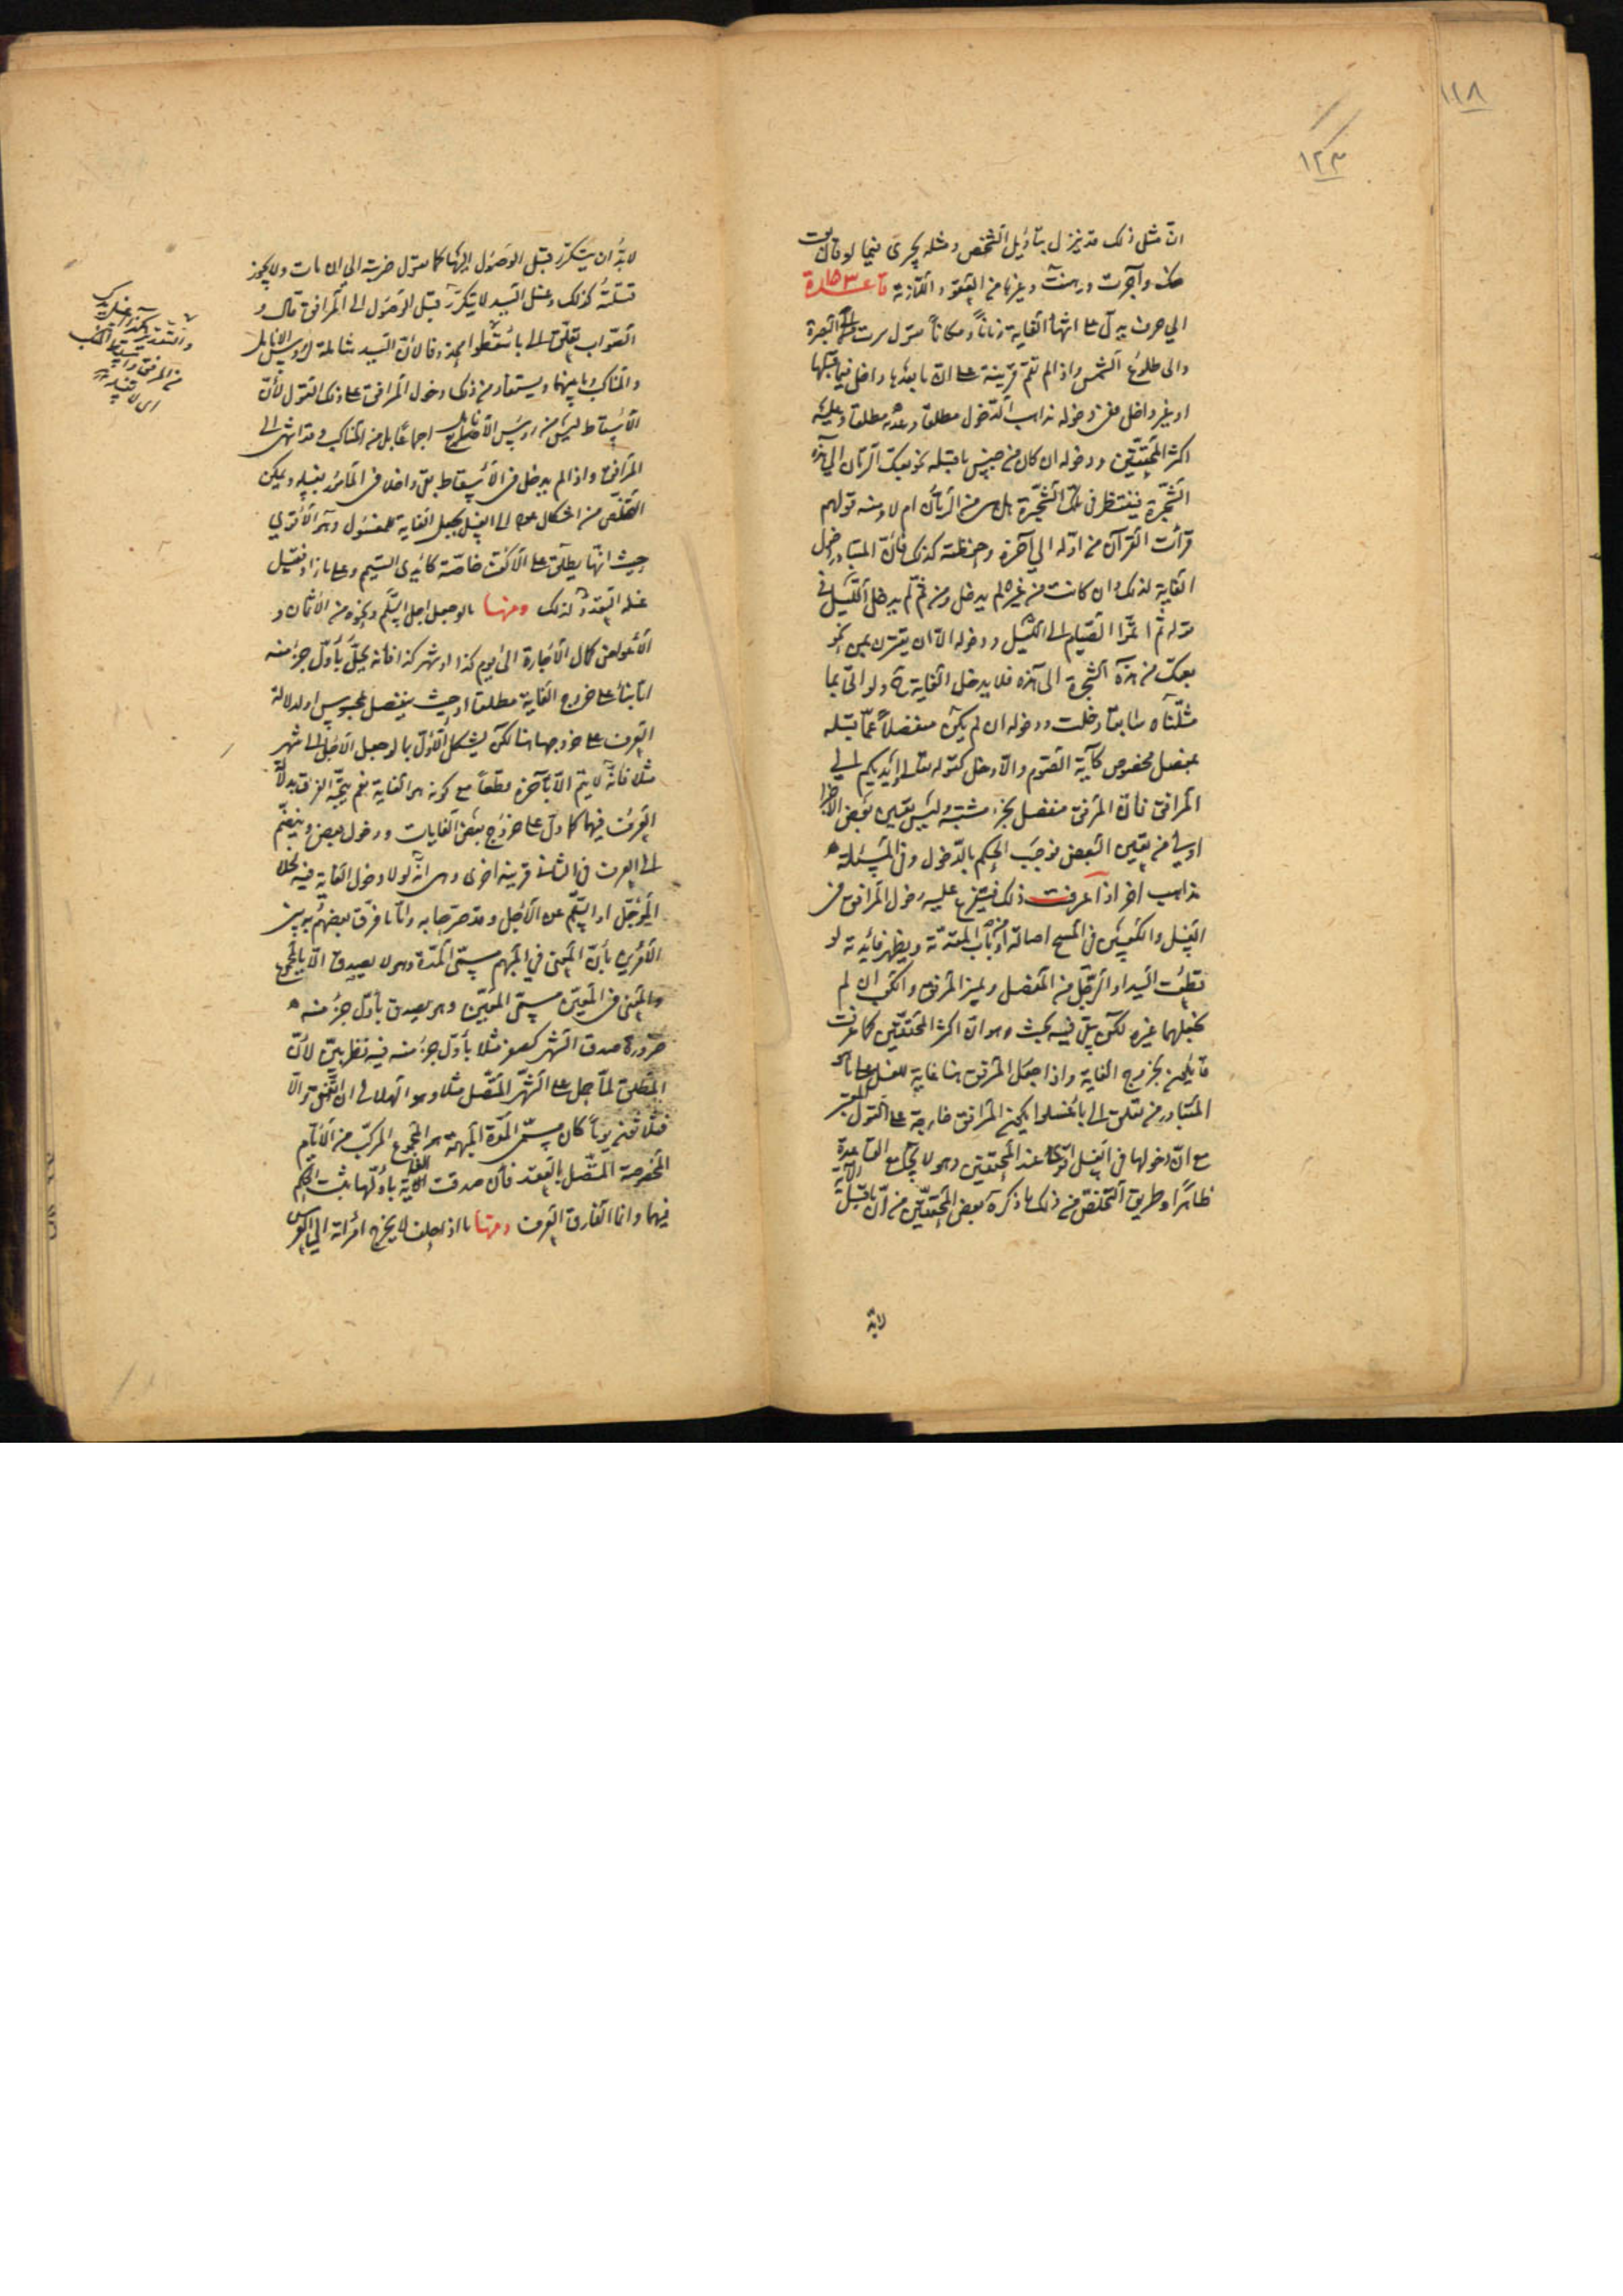 ١٢٨
١٢٣
انّ مثل ذلك قد ينزل بتأويل الشخص ومثله يجرى فيما لو قال بعت
منك وآجرت ورهنت وغيرها من العقود اللازمة قاعدة
الى حرف يدلّ على انتهاء الغاية زماناً ومكاناً تقول سرت الى البصرة
والى طلوع الشمس واذا لم تقم قرينة على انّ ما بعدها داخل فيما قبلها
او غير داخل ففى دخوله مذاهب الدخول مطلقا وعدمه مطلقا وعليه
اكثر المحققين ودخوله ان كان من جنس ما قبله نحو بعتك الرمان الى هذه
الشجرة فينتظر فى تلك الشجرة هل هى من الرمان ام لا ومنه قولهم
قرأت القرآن من اوّله الى آخره وحفظته كذلك فانّ المتبادر دخول
الغاية لذلك وان كانت من غيره لم يدخل ومن ثمّ لم يدخل الليل فى
قوله ثم اتمّوا الصيام الى الليل ودخوله الّا ان يقترن بمن نحو
بعتك من هذه الشجرة الى هذه فلا يدخل الغاية ح ولو اتى بما
مثّلناه سابقا دخلت ودخوله ان لم يكن منفصلاً عمّا قبله
بمفصل محسوس كآية الصوم والّا دخل كقوله تعالى وايديكم الى
المرافق فانّ المرفق منفصل بجزء مشتبه وليس تعيين بعض الاجزاء
اولى من تعيين البعض فوجب الحكم بالدخول وفى المسئلة
مذاهب اخر اذا عرفت ذلك فيتفرع عليه دخول المرافق فى
الغسل والكعبين فى المسح اصالة او من باب المقدّمة ويظهر فائدته لو
قطعت اليد او الرجل من المفصل ولم يبق المرفق والكعب ان لم
نجعلهما غيره لكن بقى فيه بحث وهو انّ اكثر المحققين كما عرفت
قائلون بخروج الغاية واذا جعل المرفق هنا غاية للغسل على ما هو
المتبادر من تعلّق الى باغسلوا يكون المرافق خارجة على القول المعتبر
مع انّ دخولها فى الغسل اقوى عند المحققين وهو لا يجامع القاعدة
ظاهرًا وطريق التخلص من ذلك ما ذكره بعض المحققين من انّ ما قبل الغاية
لابدّ
لابدّ ان يتكرّر قبل الوصول اليها كما تقول ضربته الى ان مات ولا يجوز
قتلته كذلك وغسل اليد لا يتكرّر قبل الوصول الى المرافق قال و
الصواب تعلّق الى باسقطوا محذوفا لانّ اليد شاملة لرؤس الانامل
والمناكب وما بينهما ويستفاد من ذلك دخول المرافق على ذلك القول لأنّ
الاسقاط ليس من رؤس الأصابع اجماعًا بل من المناكب وقد انتهى الى
المرافق واذا لم يدخل فى الاسقاط بقى داخلا فى المأمور بغسله ويمكن
التخلّص من اشكال عود الى الغسل بجعل الغاية للمغسول وهو الأيدي
حيث انّها يطلق على الاكفّ خاصّة كأيدى التيمم وعلى ما زاد فقيل
غسله التعدد لذلك ومنها ما لو جعل اجل السّلم ونحوه من الأثمان و
الأعواض كمال الأجارة الى يوم كذا او شهر كذا فانه يحلّ بأوّل جزء منه
امّا بناءً على خروج الغاية مطلقا او حيث ينفصل بمحسوس او لدلالة
العرف على خروجها هنا لكن يشكل الأوّل بما لو جعل الأجل الى شهر
مثلا فانّه لا يتمّ الّا بآخره قطعاً مع كونه هو الغاية نعم يتّجه الفرق بدلالة
العرف فيهما كما دلّ على خروج بعض الغايات ودخول بعض وينضمّ
الى العرف فى الثانى قرينة اخرى وهى انّه لولا دخول الغاية فيه لخلا
المؤجّل او السّلم عن الأجل وقد صرّحا به وامّا ما فرّق بعضهم به بين
الأمرين بأنّ المعنى في المبهم مسمّى المدّة وهو لا يصدق الّا بالمجموع
والمعنى فى المعيّن مسمّى المعيّن وهو يصدق بأوّل جزء منه
ضرورة صدق الشهر كصفر مثلا بأوّل جزء منه ففيه نظر بيّن لأنّ
المطلق لمّا حمل على الشهر المتّصل مثلا وهو الهلالى ان اتّفق والّا
فثلاثين يوماً كان مسمّى المدّة المبهمة هو المجموع المركّب من الأيّام
المخصوصة المتّصل بالعقد فان صدقت الغاية باوّلها ثبت الحكم
فيهما وانما الفارق العرف ومنها ما اذا حلف لا يخرج امرأته الى العرس
والتقدير
من المرفق